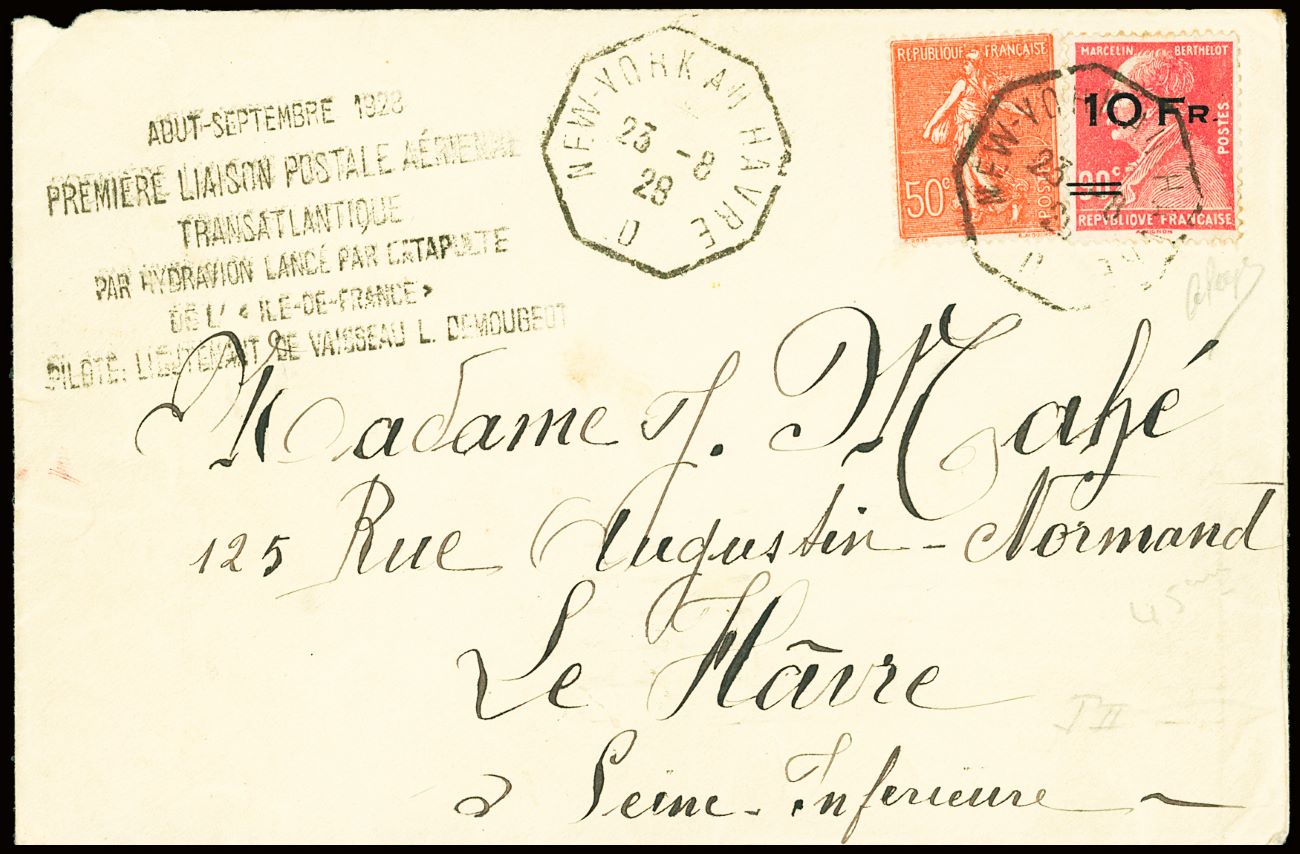 AOUT-SEPTEMBRE 1928
PREMIERE LIAISON POSTALE AÉRIENNE
TRANSATLANTIQUE
PAR HYDRAVION LANCÉ PAR CATAPULTE
DE L' « ILE-DE-FRANCE»
PILOTE: LIEUTENANT DE VAISSEAU L. DEMOUGEOT
NEW-YORK AU HAVRE D
23 -8
28
REPUBLIQUE FRANÇAISE
50c
POSTES
MARCELIN BERTHELOT
10 FR.
POSTES
90c
REPVBLIQVE FRANÇAISE
NEW-YORK AU HAVRE D
23
Madame J. Mahé
125 Rue Augustin-Normand
Le Hâvre
Seine-Inférieure